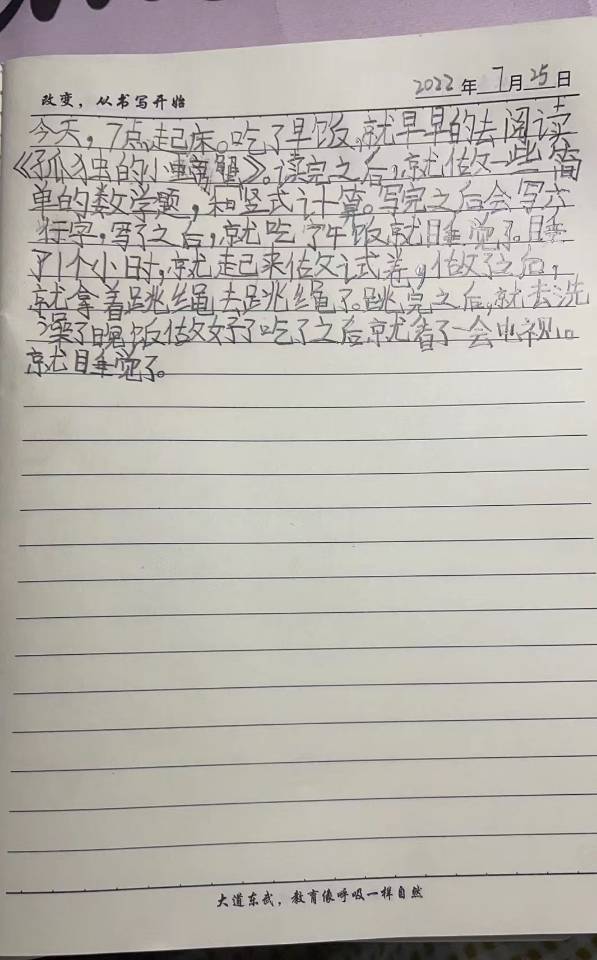 改变，从书写开始
2022年7月25日
今天，7点起床。吃了早饭，就早早的去阅读
《孤独的小螃蟹》。读完之后，就做一些简
单的数学题，和竖式计算。写完之后会写六
行字，写了之后，就吃了午饭就睡觉了。睡
了1个小时，就起来做试卷，做了之后，
就拿着跳绳去跳绳了。跳完之后，就去洗
澡了晚饭做好了吃了之后就看了一会电视。
就睡觉了。
大道东武，教育像呼吸一样自然